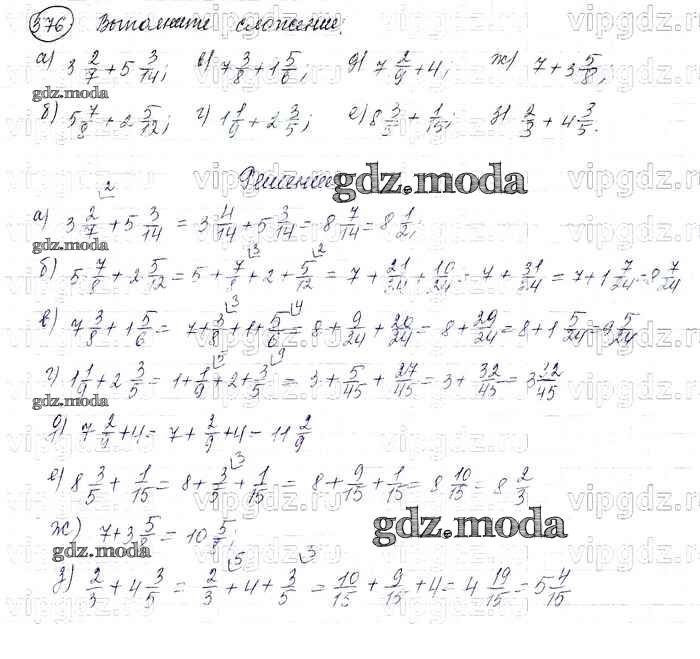 576 Выполните сложение.
а) 3 2/7 + 5 3/14; в) 7 3/8 + 1 5/6; д) 7 2/9 + 4; ж) 7 + 3 5/8;
б) 5 7/8 + 2 5/12; г) 1 1/9 + 2 3/5; е) 8 3/5 + 1/15; з) 2/3 + 4 3/5.
gdz.moda
Решение
gdz.moda
а) 3 2/7 + 5 3/14 = 3 4/14 + 5 3/14 = 8 7/14 = 8 1/2;
gdz.moda
б) 5 7/8 + 2 5/12 = 5 + 7/8 + 2 + 5/12 = 7 + 21/24 + 10/24 = 7 + 31/24 = 7 + 1 7/24 = 8 7/24
в) 7 3/8 + 1 5/6 = 7 + 3/8 + 1 + 5/6 = 8 + 9/24 + 20/24 = 8 + 29/24 = 8 + 1 5/24 = 9 5/24
г) 1 1/9 + 2 3/5 = 1 + 1/9 + 2 + 3/5 = 3 + 5/45 + 27/45 = 3 + 32/45 = 3 32/45
gdz.moda
д) 7 2/9 + 4 = 7 + 2/9 + 4 = 11 2/9
е) 8 3/5 + 1/15 = 8 + 3/5 + 1/15 = 8 + 9/15 + 1/15 = 8 10/15 = 8 2/3
ж) 7 + 3 5/8 = 10 5/8;
gdz.moda
gdz.moda
з) 2/3 + 4 3/5 = 2/3 + 4 + 3/5 = 10/15 + 9/15 + 4 = 4 19/15 = 5 4/15